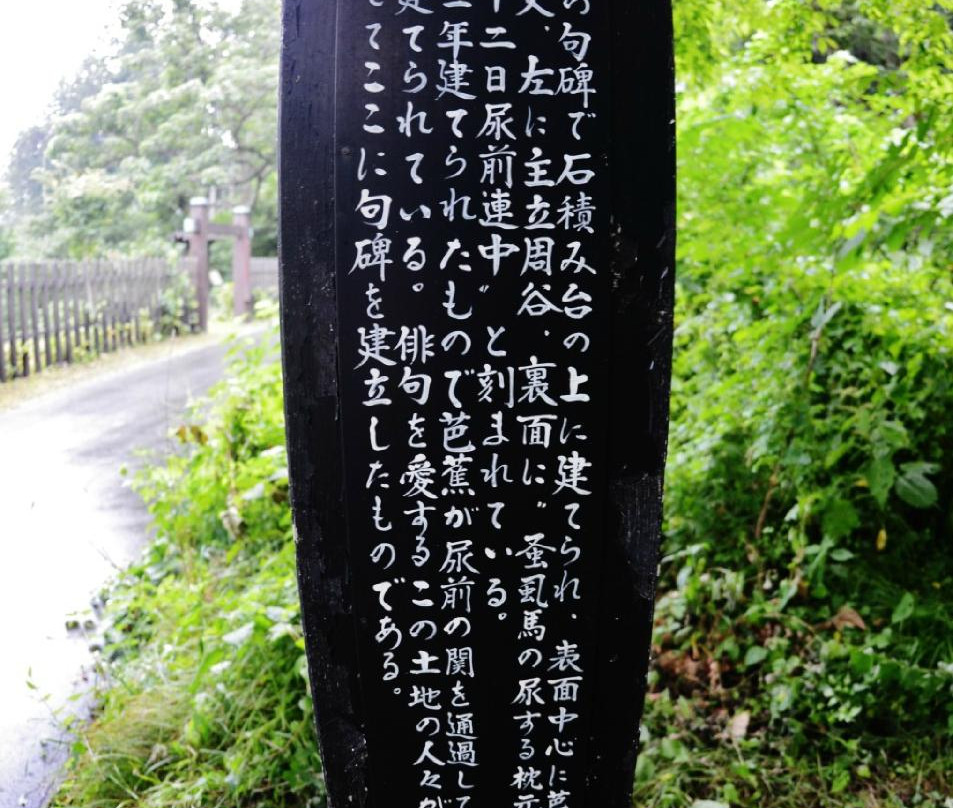 の句碑で石積み台の上に建てられ、表面中心に芭
、左に主立周谷、裏面に〝蚤虱馬の尿する枕元
十二日尿前連中〟と刻まれている。
二年建てられたもので芭蕉が尿前の関を通過して
建てられている。俳句を愛するこの土地の人々が
てここに句碑を建立したものである。